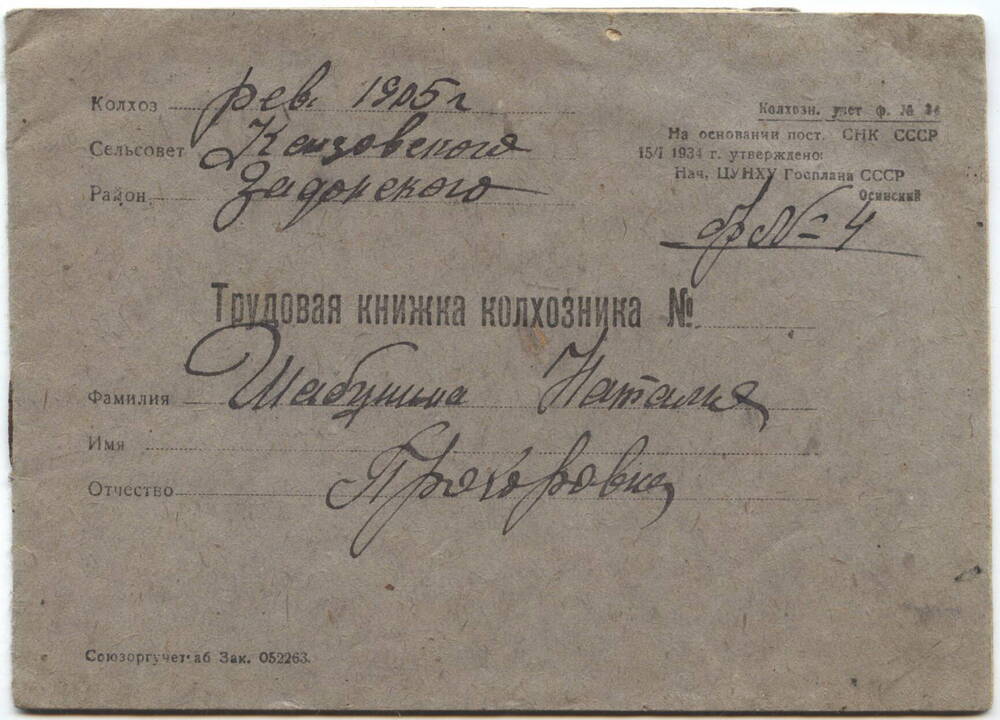 Колхоз рев. 1905 г
Сельсовет Ксизовского
Район Задонского
Колхозн. учет ф. № 24
На основании пост. СНК СССР
15/I 1934 г. утверждено:
Нач. ЦУНХУ Госплана СССР
Осинский
ф № 4
Трудовая книжка колхозника №
Фамилия Шабунина Наталья
Имя
Отчество Прохоровна
Союзоргучет аб Зак. 052263.